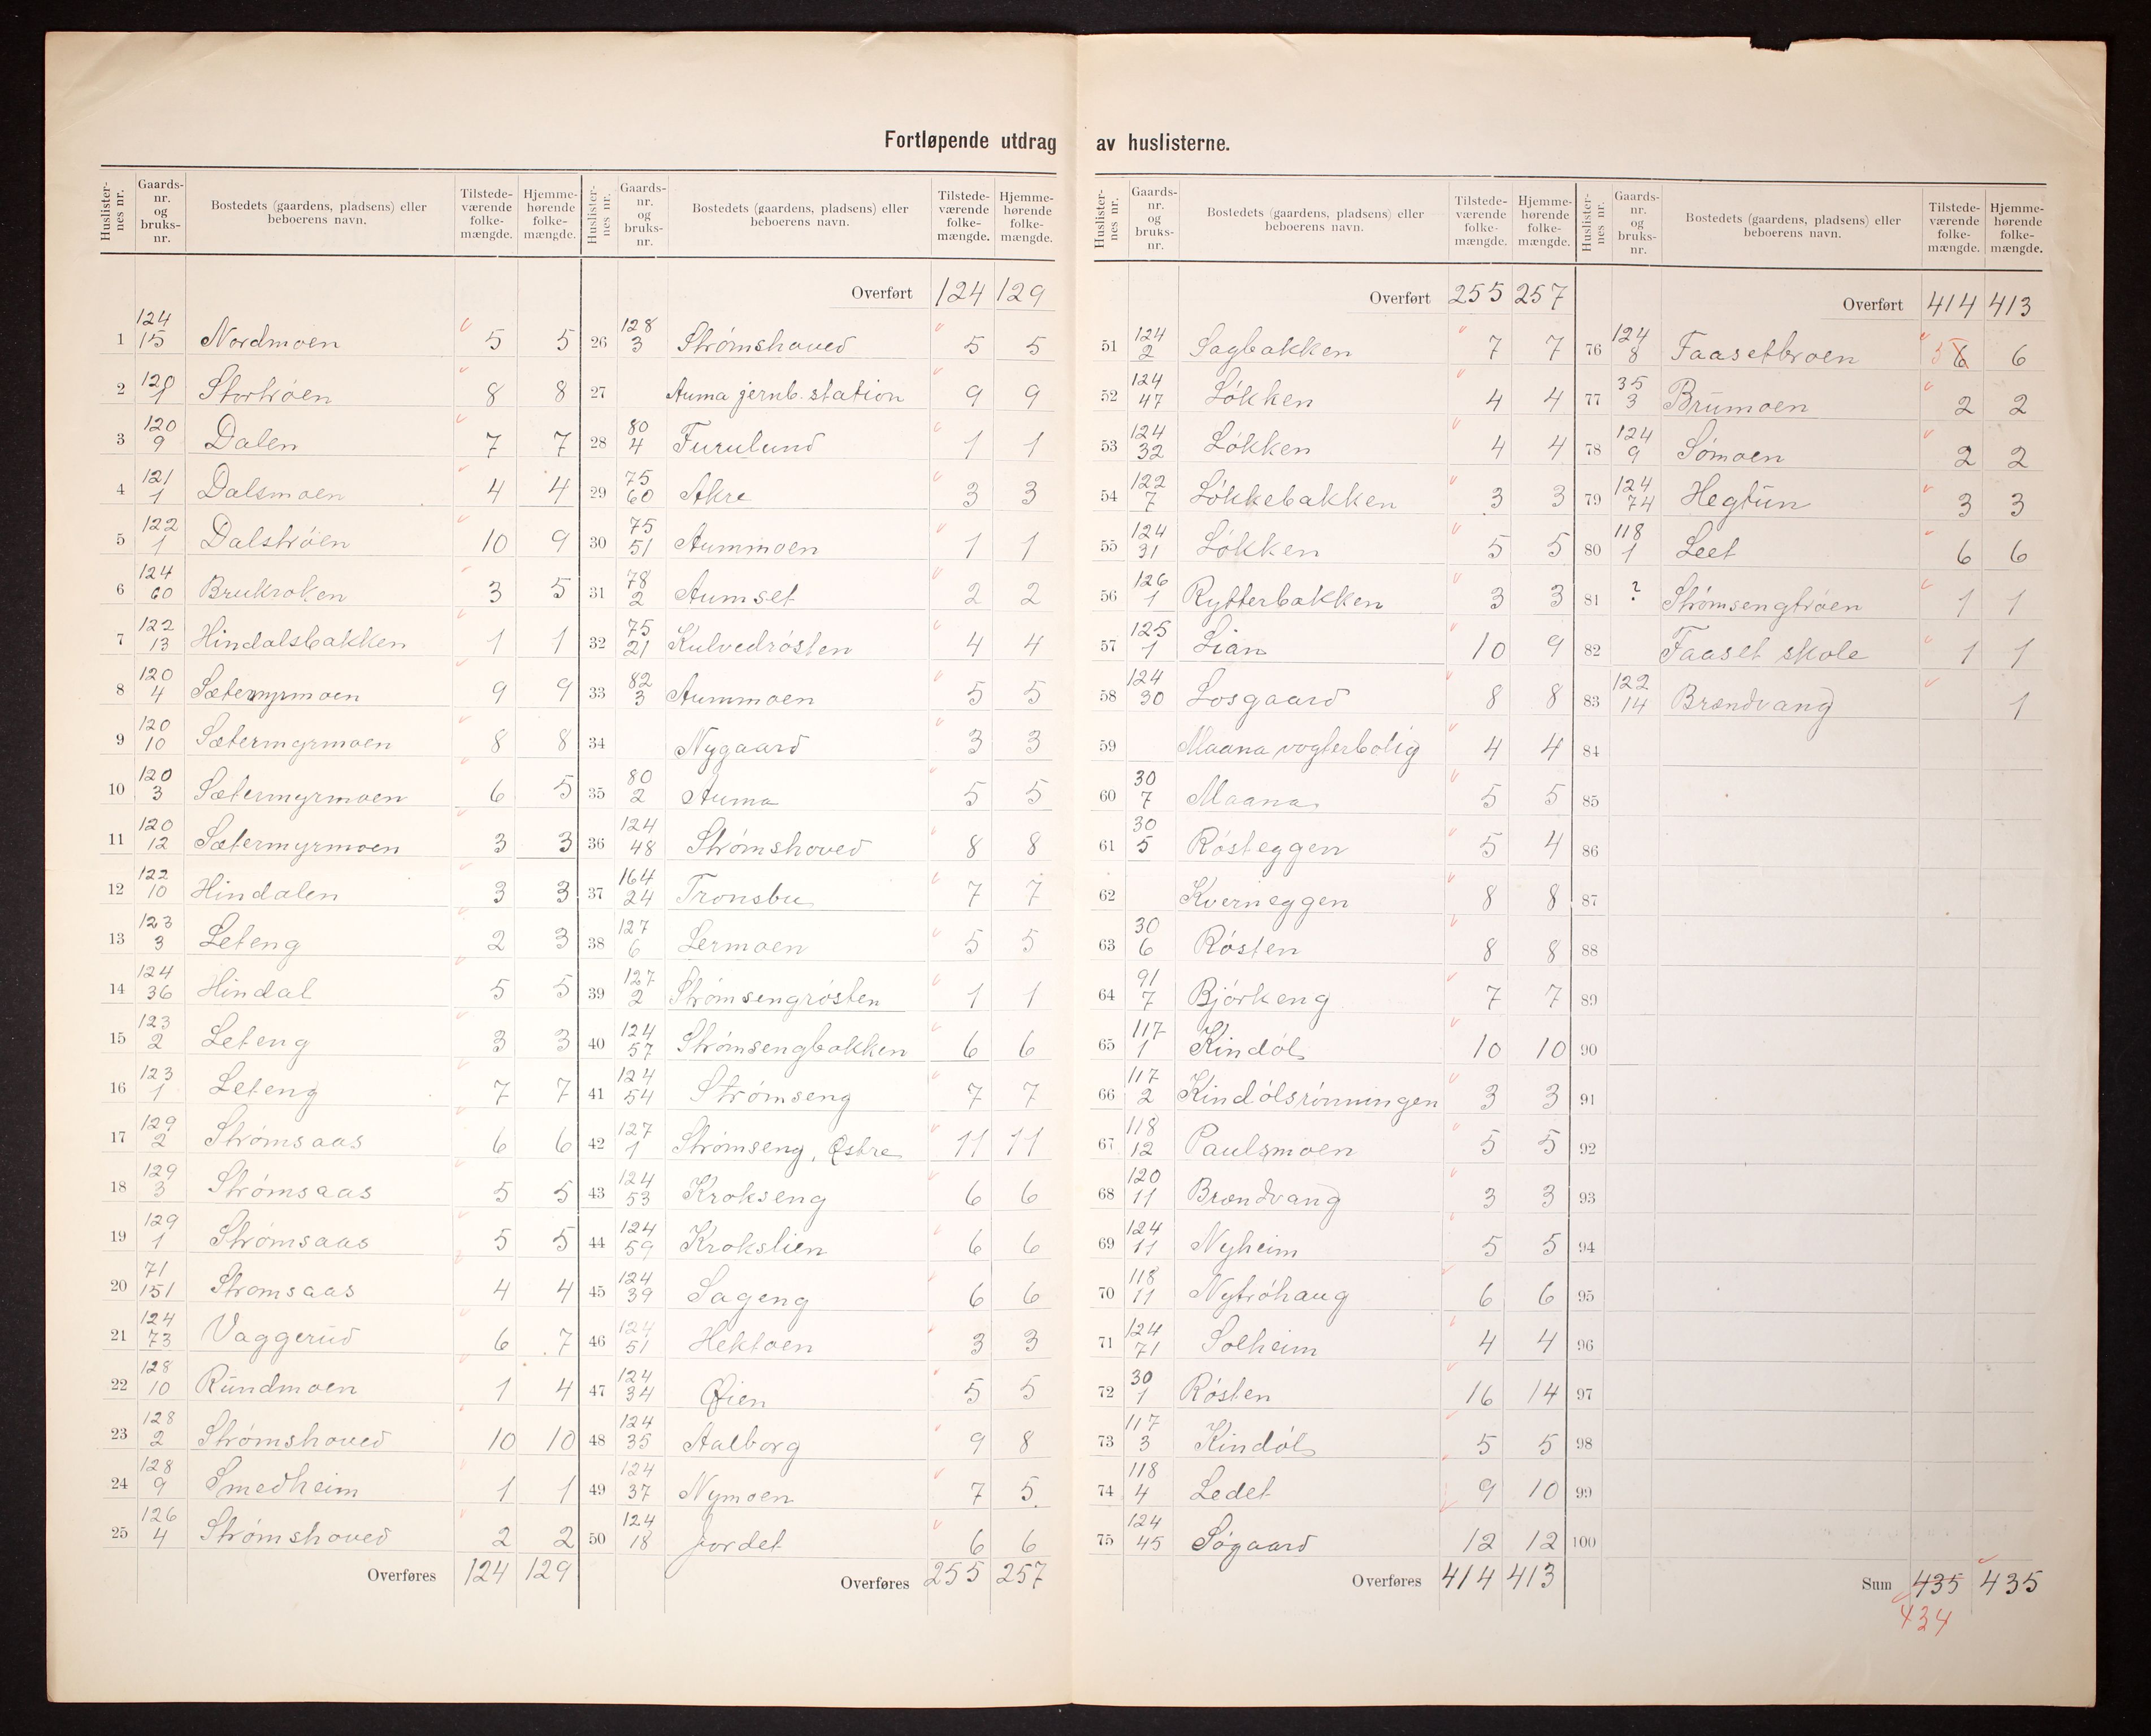 Fortløpende utdrag av huslisterne.
Huslisternes nr. | Gaards-nr. og bruks-nr. | Bostedets (gaardens, pladsens) eller beboerens navn. | Tilstede-værende folke-mængde. | Hjemme-hørende folke-mængde.
1 124/15 Nordmoen 5 5
2 120/1 Stortrøen 8 8
3 120/9 Dalen 7 7
4 121/1 Dalsmoen 4 4
5 122/1 Dalstrøen 10 9
6 124/60 Brukroken 3 5
7 122/13 Hindalsbakken 1 1
8 120/4 Sætermyrmoen 9 9
9 120/10 Sætermyrmoen 8 8
10 120/3 Sætermyrmoen 6 5
11 120/12 Sætermyrmoen 3 3
12 122/10 Hindalen 3 3
13 123/3 Leteng 2 3
14 124/36 Hindal 5 5
15 123/2 Leteng 3 3
16 123/1 Leteng 7 7
17 129/2 Strømsaas 6 6
18 129/3 Strømsaas 5 5
19 129/1 Strømsaas 5 5
20 71/151 Strømsaas 4 4
21 124/73 Vaggerud 6 7
22 128/10 Rundmoen 1 4
23 128/2 Strømshoved 10 10
24 128/9 Smedheim 1 1
25 126/4 Strømshoved 2 2
Overføres 124 129
Huslisternes nr. | Gaards-nr. og bruks-nr. | Bostedets (gaardens, pladsens) eller beboerens navn. | Tilstede-værende folke-mængde. | Hjemme-hørende folke-mængde.
Overført 124 129
26 128/3 Strømshoved 5 5
27 Auma jernb. station 9 9
28 80/4 Furulund 1 1
29 75/60 Akre 3 3
30 75/51 Aummoen 1 1
31 78/2 Aumset 2 2
32 75/21 Kulvedrøsten 4 4
33 82/3 Aummoen 5 5
34 Nygaard 3 3
35 80/2 Auma 5 5
36 124/48 Strømshoved 8 8
37 164/24 Tronsbu 7 7
38 127/6 Lermoen 5 5
39 127/2 Strømsengrøsten 1 1
40 124/57 Strømsengbakken 6 6
41 124/54 Strømseng 7 7
42 127/1 Strømseng, Østre 11 11
43 124/53 Krokseng 6 6
44 124/59 Krokslien 6 6
45 124/39 Sageng 6 6
46 124/51 Hektoen 3 3
47 124/34 Øien 5 5
48 124/35 Aalborg 9 8
49 124/37 Nymoen 7 5
50 124/18 Jordet 6 6
Overføres 255 257
Huslisternes nr. | Gaards-nr. og bruks-nr. | Bostedets (gaardens, pladsens) eller beboerens navn. | Tilstede-værende folke-mængde. | Hjemme-hørende folke-mængde.
Overført 255 257
51 124/2 Sagbakken 7 7
52 124/47 Løkken 4 4
53 124/32 Løkken 4 4
54 122/7 Løkkebakken 3 3
55 124/31 Løkken 5 5
56 126/1 Rytterbakken 3 3
57 125/1 Lian 10 9
58 124/30 Losgaard 8 8
59 Maana vogterbolig 4 4
60 30/7 Maana 5 5
61 30/5 Røsteggen 5 4
62 Kverneggen 8 8
63 30/6 Røsten 8 8
64 91/7 Bjørkeng 7 7
65 117/1 Kindøl 10 10
66 117/2 Kindølsrønningen 3 3
67 118/12 Paulsmoen 5 5
68 120/11 Brændvang 3 3
69 124/11 Nyheim 5 5
70 118/11 Nytrøhaug 6 6
71 124/71 Solheim 4 4
72 30/1 Røsten 16 14
73 117/3 Kindøl 5 5
74 118/4 Ledet 9 10
75 124/45 Søgaard 12 12
Overføres 414 413
Huslisternes nr. | Gaards-nr. og bruks-nr. | Bostedets (gaardens, pladsens) eller beboerens navn. | Tilstede-værende folke-mængde. | Hjemme-hørende folke-mængde.
Overført 414 413
76 124/8 Faasetbroen 5 6 6
77 35/3 Brumoen 2 2
78 124/9 Sømoen 2 2
79 124/74 Hegtun 3 3
80 118/1 Leet 6 6
81 ? Strømsengtrøen 1 1
82 Faaset skole 1 1
83 122/14 Brændvang 1
84
85
86
87
88
89
90
91
92
93
94
95
96
97
98
99
100
Sum 435 435
434